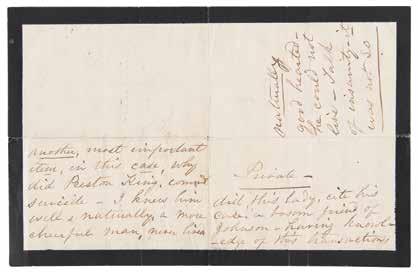 another, most important
item, in this case, why
did Preston King, commit
suicide – I knew him
well & naturally, a more
cheerful man, never lived
Private –
did, this lady, cite his
case, a bosom friend of
Johnson – having knowl-
edge of his transactions
naturally
good hearted –
he could not
live – Talk
of insanity – it
was not so